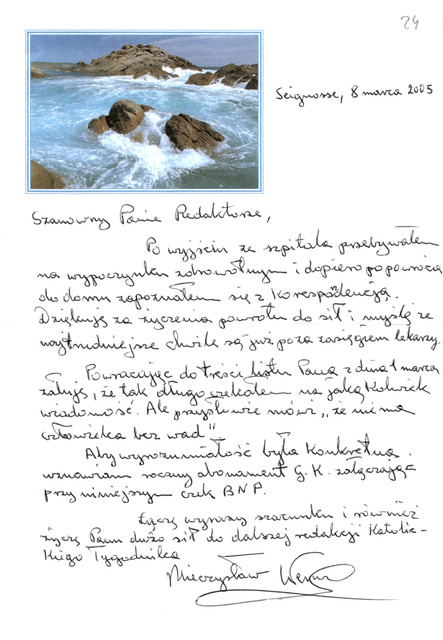 24
Seignosse, 8 marca 2005
Szanowny Panie Redaktorze,
Po wyjściu ze szpitala przebywałem
na wypoczynku zdrowotnym i dopiero po powrocie
do domu zapoznałem się z Korespondencją.
Dziękuję za życzenia powrotu do sił i myślę że
najtrudniejsze chwile są już poza zasięgiem lekarzy.
Powracając do treści listu Pana z dnia 1 marca
żałuję, że tak długo czekałem na jaką kolwiek
wiadomość. Ale przysłowie mówi „że nie ma
człowieka bez wad”.
Aby wyrozumiałość była Konkretną
wznawiam roczny abonament G.K. załączając
przy niniejszym czek BNP.
Łączę wyrazy szacunku i również
życzę Panu dużo sił do dalszej redakcji Katolic-
kiego Tygodnika
Mieczysław